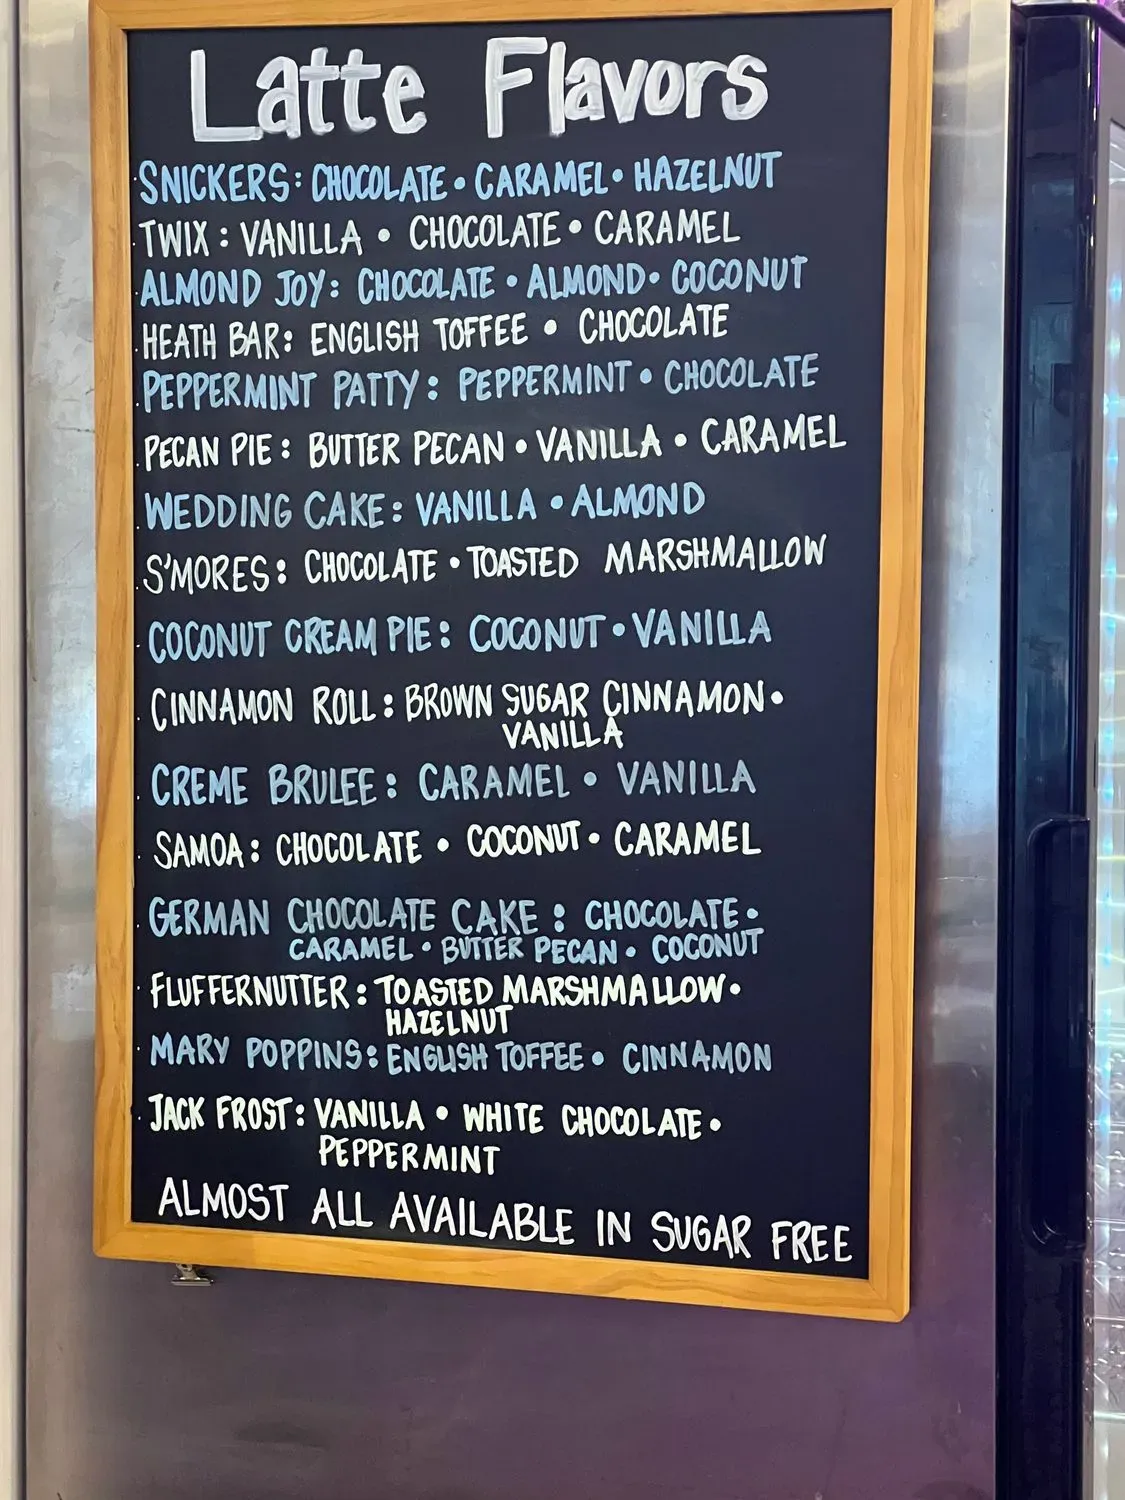 Latte Flavors
SNICKERS: CHOCOLATE • CARAMEL • HAZELNUT
TWIX: VANILLA • CHOCOLATE • CARAMEL
ALMOND JOY: CHOCOLATE • ALMOND • COCONUT
HEATH BAR: ENGLISH TOFFEE • CHOCOLATE
PEPPERMINT PATTY: PEPPERMINT • CHOCOLATE
PECAN PIE: BUTTER PECAN • VANILLA • CARAMEL
WEDDING CAKE: VANILLA • ALMOND
S'MORES: CHOCOLATE • TOASTED MARSHMALLOW
COCONUT CREAM PIE: COCONUT • VANILLA
CINNAMON ROLL: BROWN SUGAR CINNAMON •
VANILLA
CREME BRULEE: CARAMEL • VANILLA
SAMOA: CHOCOLATE • COCONUT • CARAMEL
GERMAN CHOCOLATE CAKE: CHOCOLATE •
CARAMEL • BUTTER PECAN • COCONUT
FLUFFERNUTTER: TOASTED MARSHMALLOW •
HAZELNUT
MARY POPPINS: ENGLISH TOFFEE • CINNAMON
JACK FROST: VANILLA • WHITE CHOCOLATE •
PEPPERMINT
ALMOST ALL AVAILABLE IN SUGAR FREE